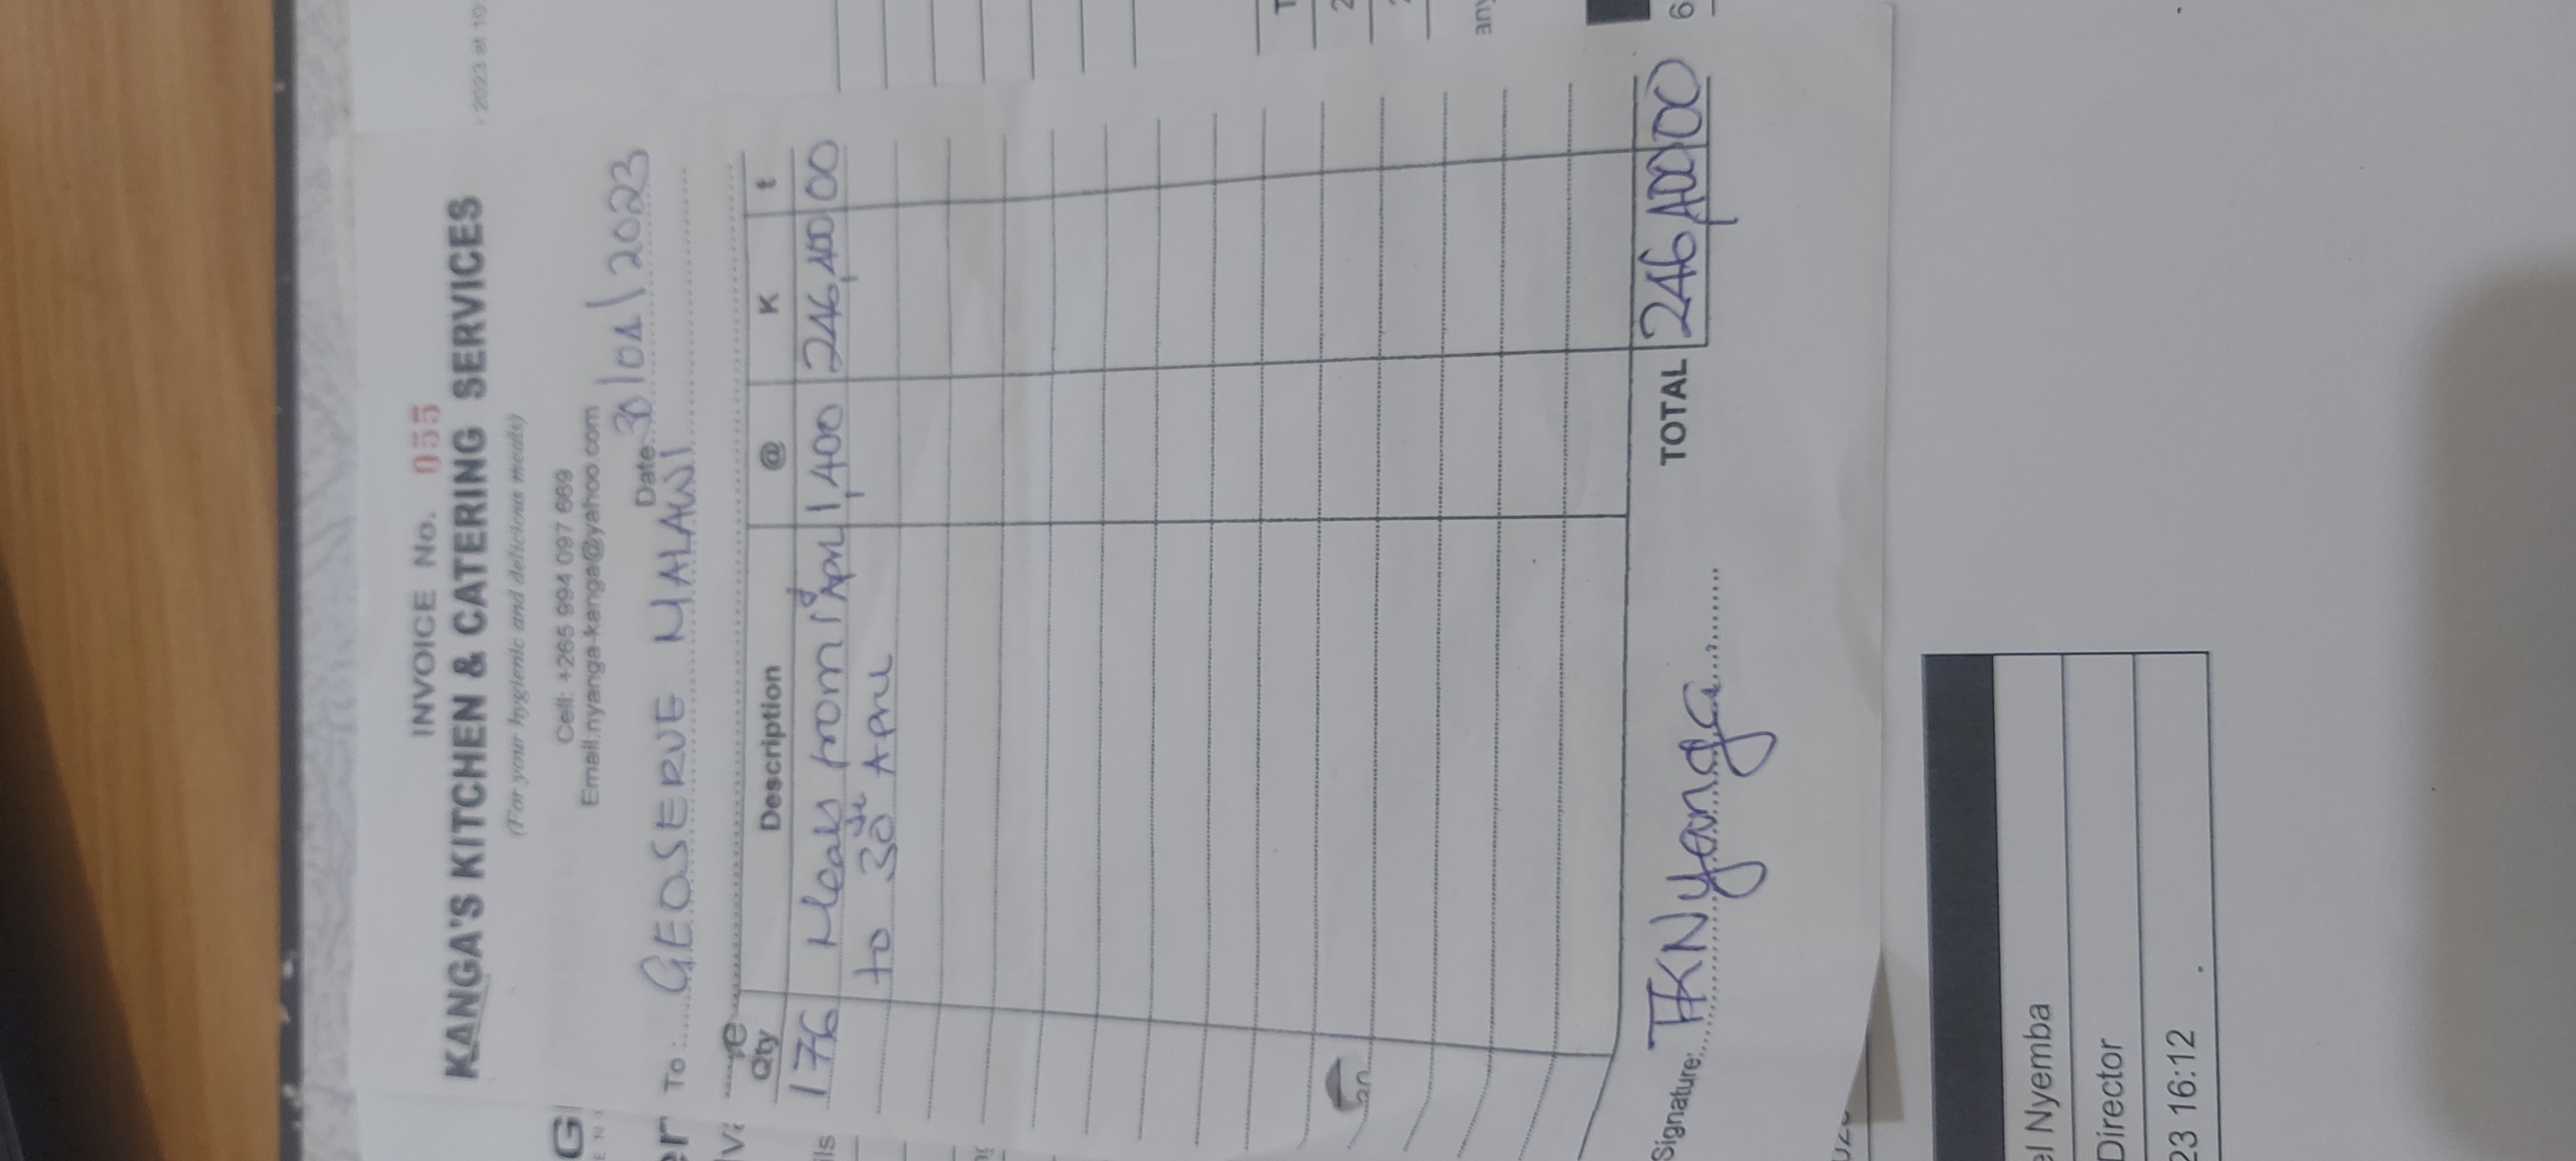 INVOICE No. 055
KANGA'S KITCHEN & CATERING SERVICES
(For your hygienic and delicious meals)
Cell: +265 994 097 669
Email:nyanga-kanga@yahoo.com
Date: 30/04/2023
To: GEOSERVE MALAWI
Qty Description @ K t
176 Meals from 1st April 1,400 246,400 00
to 30th April
Signature: TKNyanga
TOTAL 246,400 00
2023 at 10
el Nyemba
Director
23 16:12